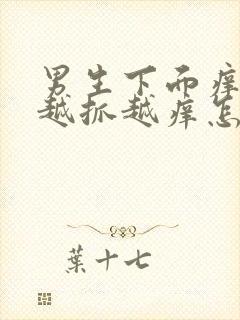 男生下面痒
越抓越痒怎
葉十七